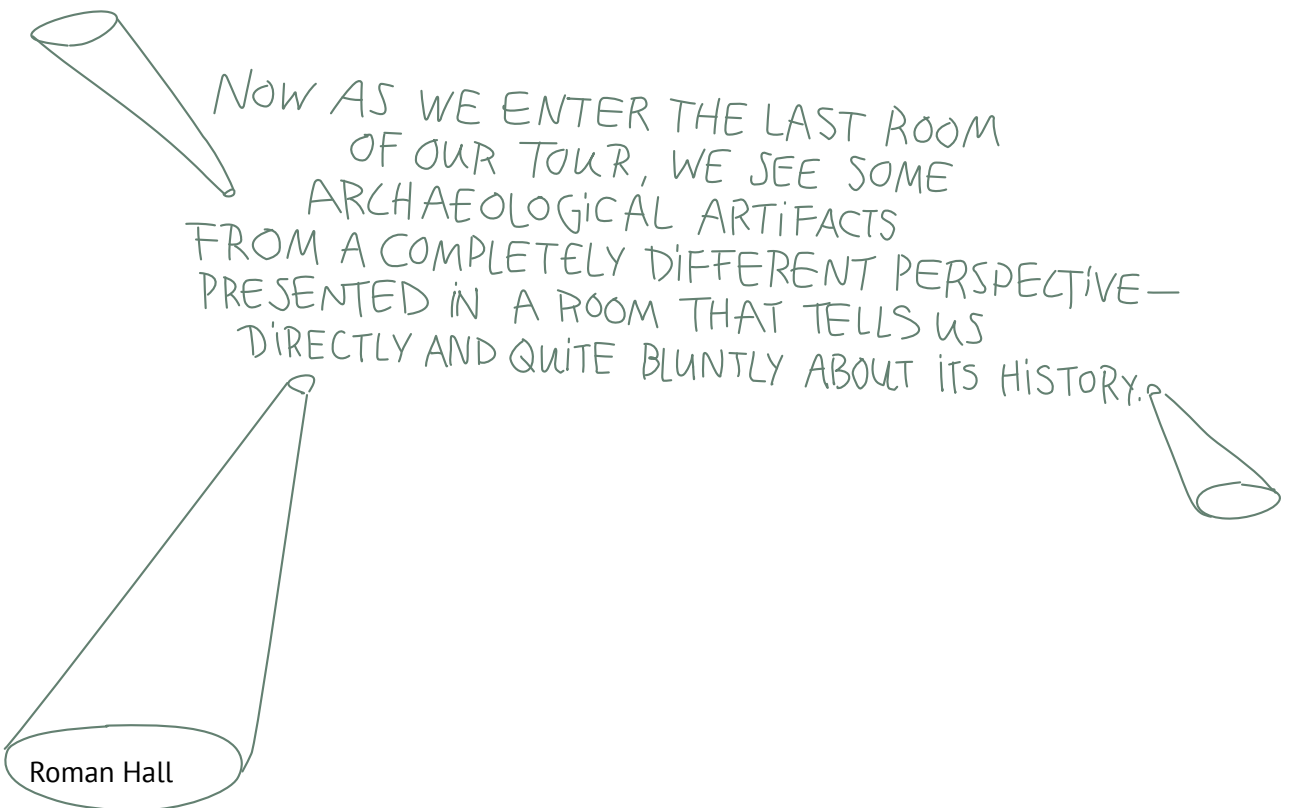 NOW AS WE ENTER THE LAST ROOM
OF OUR TOUR, WE SEE SOME
ARCHAEOLOGiCAL ARTiFACTS
FROM A COMPLETELY DiFFERENT PERSPECTiVE—
PRESENTED iN A ROOM THAT TELLS US
DiRECTLY AND QUiTE BLUNTLY ABOUT iTS HiSTORY.
Roman Hall